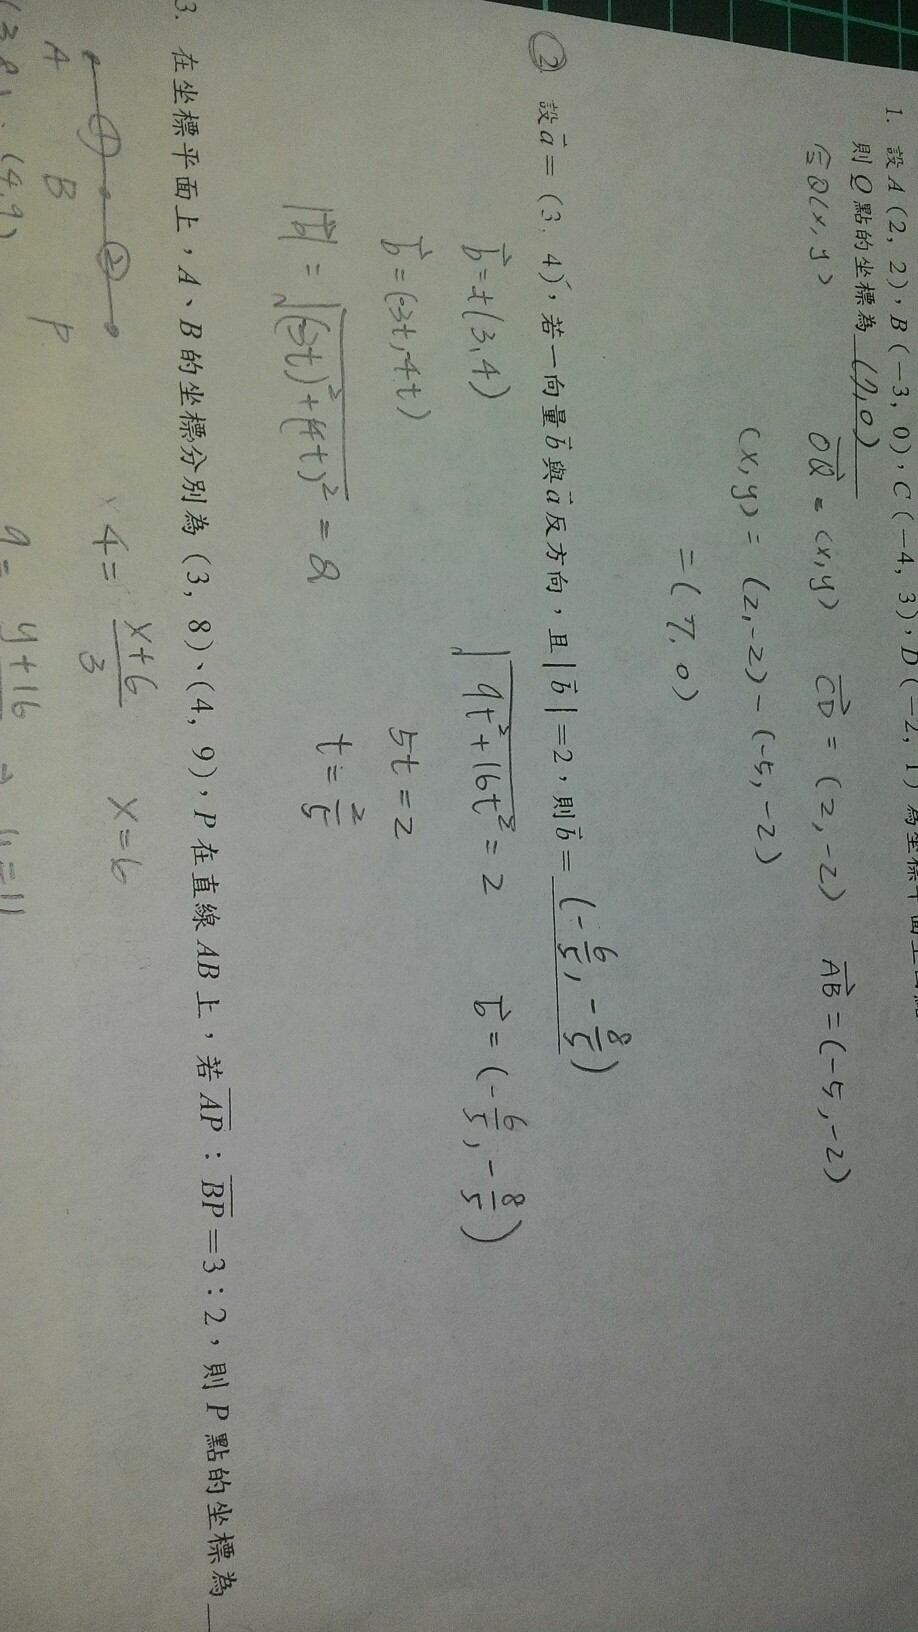 1. 設A(2, 2), B(-3, 0), C(-4, 3), D(-2, 1)為坐標平面上
則Q點的坐標為 (7,0)
Q(x,y) OQ = (x,y) CD = (2,-2) AB = (-5,-2)
(x,y) = (2,-2) - (-5,-2)
= (7,0)
② 設a=(3, 4), 若一向量b與a反方向, 且|b|=2, 則b= (-6/5, -8/5)
b=t(3,4) √9t²+16t² = 2 b = (-6/5, -8/5)
b=(3t,4t) 5t=2
|b| = √(3t)²+(4t)² = 2 t=2/5
3. 在坐標平面上, A、B的坐標分別為(3, 8)、(4, 9), P在直線AB上, 若AP:BP=3:2, 則P點的坐標為
① ② 4= x+6/3 x=6
A B P
(3,8) (4,9) 9= y+16 y=11